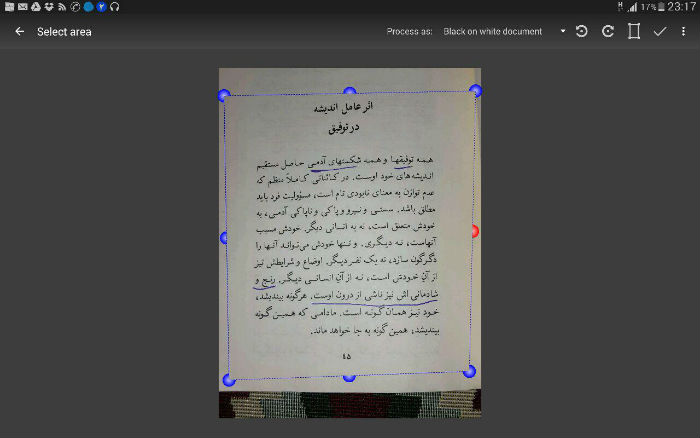 17% 23:17
Select area
Process as: Black on white document
اثر عامل اندیشه
در توفیق
همه توفیقها و همه شکستهای آدمی حاصل مستقیم
اندیشه‌های خود اوست. در کائناتی کاملاً منظم که
عدم توازن به معنای نابودی تام است، مسؤولیت فرد باید
مطلق باشد. سستی و نیرو و پاکی و ناپاکی آدمی، به
خودش متعلق است، نه به انسانی دیگر. خودش مسبب
آنهاست، نه دیگری. و تنها خودش می‌تواند آنها را
دگرگون سازد، نه یک نفر دیگر. اوضاع و شرایطش نیز
از آنِ خودش است، نه از آنِ انسانی دیگر. رنج و
شادمانی اش نیز ناشی از درون اوست. هرگونه بیندیشد،
خود نیز همان گونه است. مادامی که همین گونه
بیندیشد، همین گونه به جا خواهد ماند.
۴۵